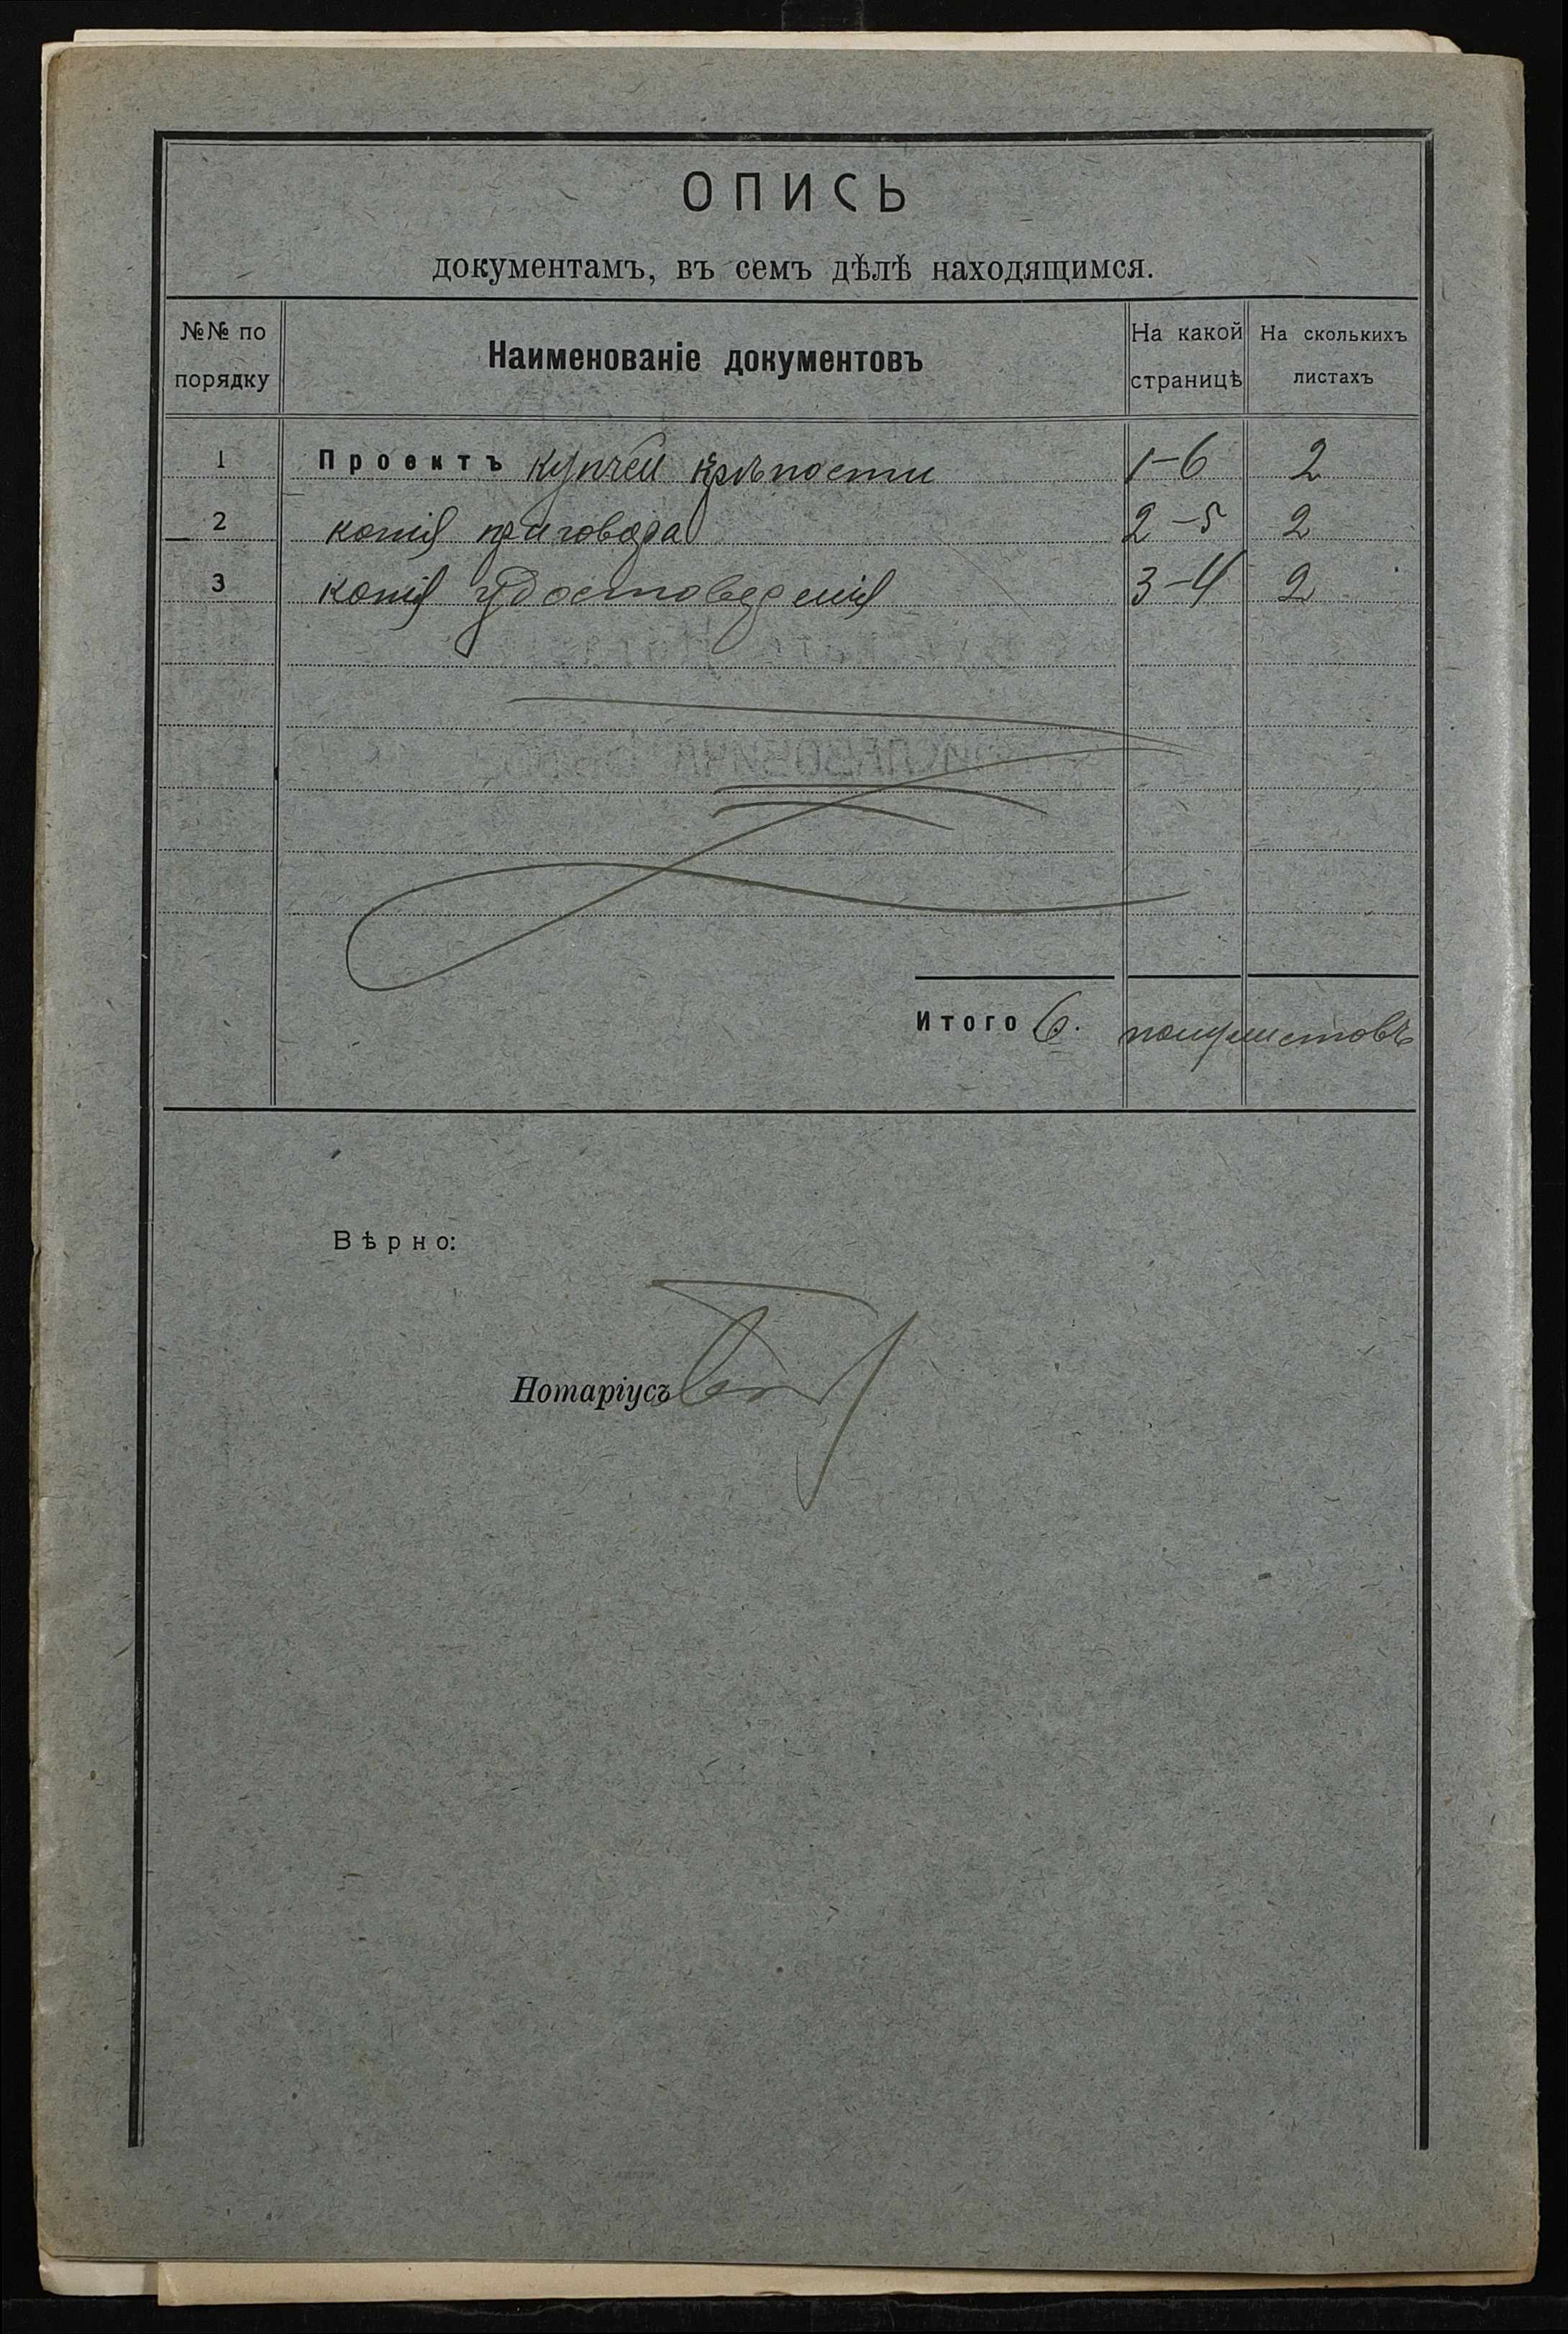 ОПИСЬ
документамъ, въ семъ дѣлѣ находящимся.
№№ по порядку
Наименованіе документовъ
На какой страницѣ
На сколькихъ листахъ
1 Проектъ купчей крѣпости 1-6 2
2 копія приговора 2-5 2
3 копія удостовѣренія 3-4 2
Итого 6. полулистовъ
Вѣрно:
Нотаріусъ